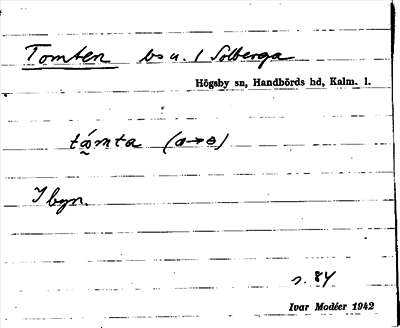 Tomten bs u. / Solberga
Högsby sn, Handbörds hd, Kalm. l.
támta (a→ɵ)
I byn.
s. 84
Ivar Modéer 1942